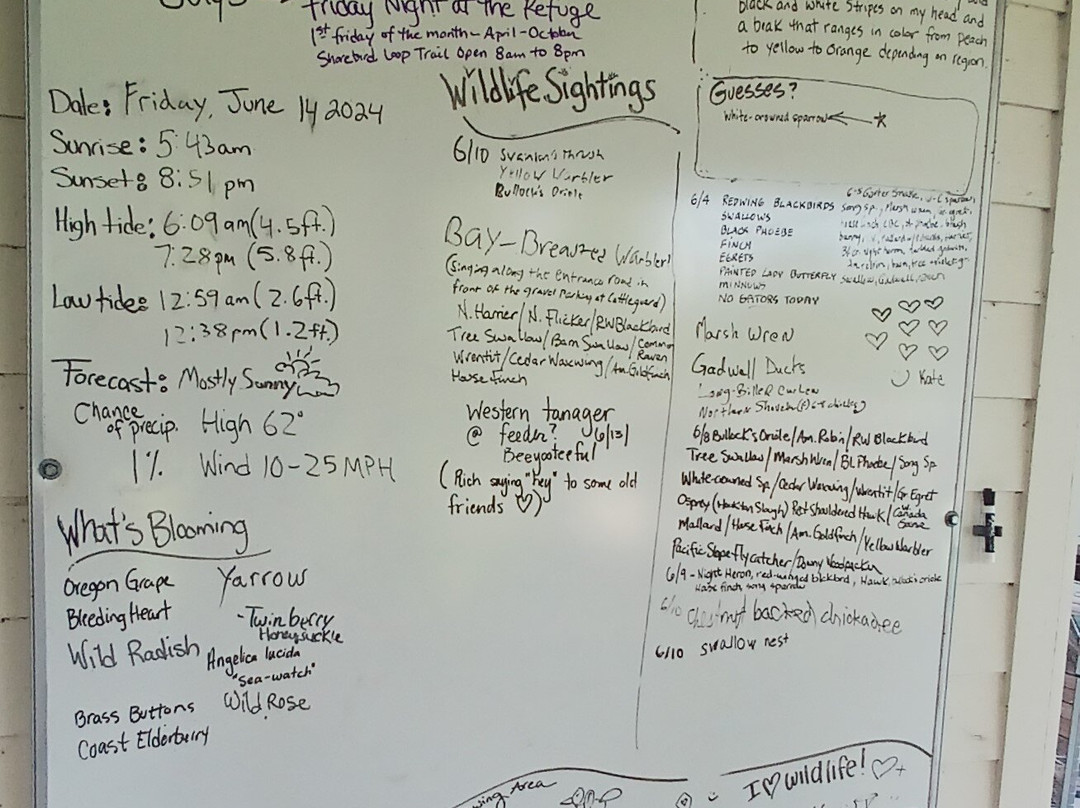 Friday Night at the Refuge
1st friday of the month - April - October
Shorebird Loop Trail Open 8am to 8pm
Date: Friday, June 14 2024
Sunrise: 5:43am
Sunset: 8:51 pm
High tide: 6:09am (4.5ft.)
7:28pm (5.8 ft.)
Low tide: 12:59am (2.6ft.)
12:38pm (1.2ft)
Forecast: Mostly Sunny
Chance of precip. 1%
High 62°
Wind 10-25 MPH
What's Blooming
Oregon Grape
Bleeding Heart
Wild Radish
Brass Buttons
Coast Elderburry
Yarrow
-Twinberry
Honeysuckle
Angelica lucida
"sea-watch"
Wild Rose
Wildlife Sightings
6/10 Swanson's thrush
Yellow Warbler
Bullock's Oriole
Bay-Breasted Warbler!
(Singing along the entrance road in
front of the gravel parking at Cattleguard)
N. Harrier/N. Flicker/RW Blackbird
Tree Swallow/Barn Swallow/Common Raven
Wrentit/Cedar Waxwing/Am. Goldfinch
House finch
Western tanager
@ feeder? 6/13/
Beeyooteeful
(Rich saying "hey" to some old
friends ♡)
black and white stripes on my head and
a beak that ranges in color from peach
to yellow to orange depending on region.
Guesses?
white-crowned sparrow
6/4 REDWING BLACKBIRDS
SWALLOWS
BLACK PHOEBE
FINCH
EGRETS
PAINTED LADY BUTTERFLY
MINNOWS
NO GATORS TODAY
Marsh Wren
Gadwall Ducks
Long-Billed Curlew
Northern Shoveler
Kate
6/8 Bullock's Oriole/Am. Robin/RW Blackbird
Tree Swallow/Marsh Wren/Bl. Phoebe/Song Sp
White-crowned Sp/Cedar Waxwing/Wrentit/Gr. Egret
Osprey Red Shouldered Hawk/Canada Goose
Mallard/House Finch/Am. Goldfinch/Yellow Warbler
Pacific Slope flycatcher/Downy Woodpecker
6/9 - Night Heron, red-winged blackbird, Hawk, bullock's oriole
House finch song sparrow
6/10 Chestnut backed chickadee
6/10 swallow nest
I ♡ wildlife! ♡+